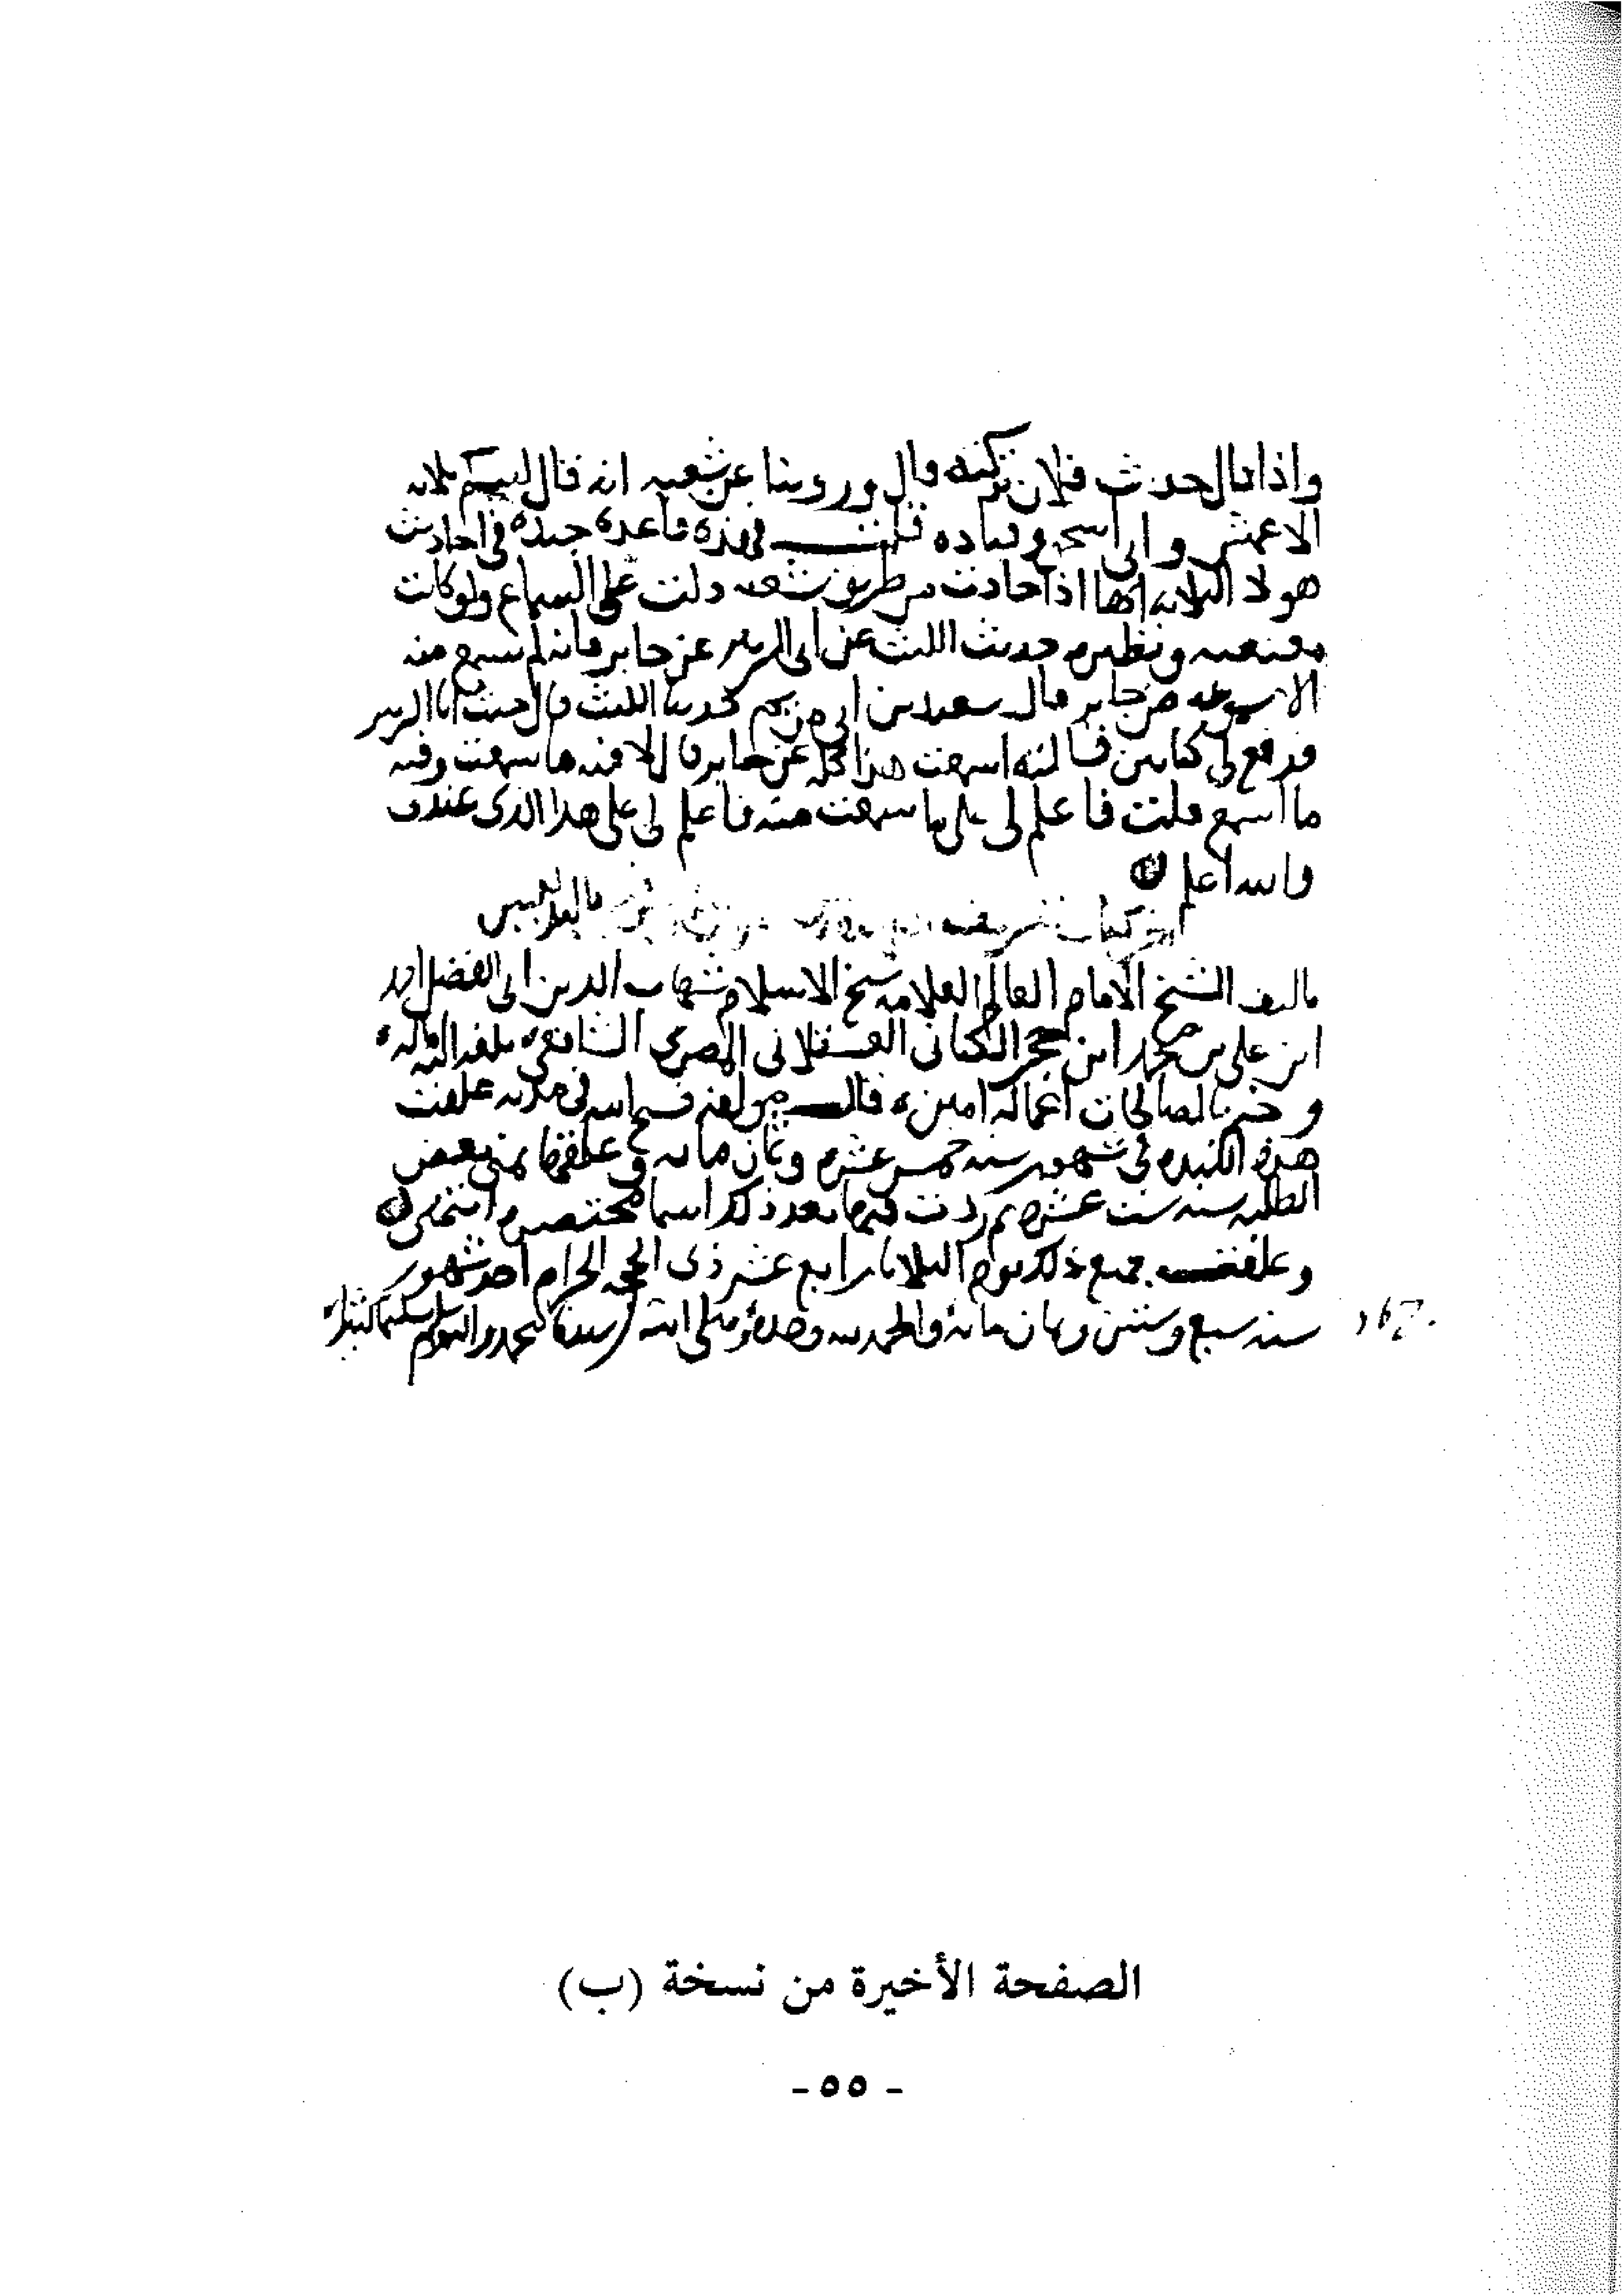 واذا قال حدث فلان تركته قال وروينا عن شعبه انه قال كفيتكم ثلاثه
الاعمش وابى اسحق وقتاده قلت فهذه قاعده جيده فى احاديث
هولا الثلاثه انها اذا جات من طريق شعبه دلت على السماع ولو كانت
معنعنه ونظيره حديث الليث عن ابى الزبير عن جابر فانه لم يسمع منه
الا مسموعه من جابر قال سعيد بن ابى مريم حدثنا الليث قال جيت ابا الزبير
فدفع لى كتابين فسالته اسمعت هذا كله عن جابر قال لا فيه ما سمعت وفيه
ما لم اسمع قلت فاعلم لى على ما سمعت منه فاعلم لى على هذا الذى عندى
والله اعلم
اخر كتاب تعريف
تاليف الشيخ الامام العالم العلامه شيخ الاسلام شهاب الدين ابى الفضل احمد
ابن على بن محمد ابن حجر الكنانى العسقلانى المصرى الشافعى بلغه الله اماله
وختم بالصالحات اعماله امين قال مولفه فسح الله فى مدته علقت
هذه النبذه فى شهور سنه خمس عشره وثمان مايه وعلقها منى بعض
الطلبه سنه ست عشره ثم زدت فيها بعد ذلك اسما مختصره انتهى
وعلقت جميع ذلك يوم الثلاثا رابع عشر ذى الحجه الحرام احد شهور
سنه سبع وستين وثمان مائة والحمد لله وحده وصلى الله على سيدنا محمد واله وسلم تسليما كثيرا
الصفحة الأخيرة من نسخة (ب)
- ٥٥ -